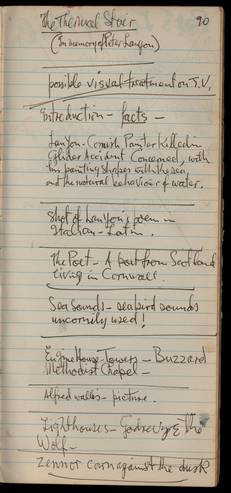 The Thermal Stair
90
(In memory of Peter Lanyon)
possible visual treatment on T.V.
Introduction - facts -
Lanyon - Cornish Painter killed in
Glider Accident Concerned, with
his painting shapes with the sea,
and the natural behaviour of water.
Shot of Lanyon's poem in
Italian - Latin.
The Poet - A poet from Scotland
living in Cornwall.
Sea Sounds - seabird sounds
uncornily used!
Engine House Towers - Buzzard
Methodist Chapel -
Alfred Wallis - picture.
Lighthouses - Godrevy & The
Wolf -
Zennor carn against the dusk